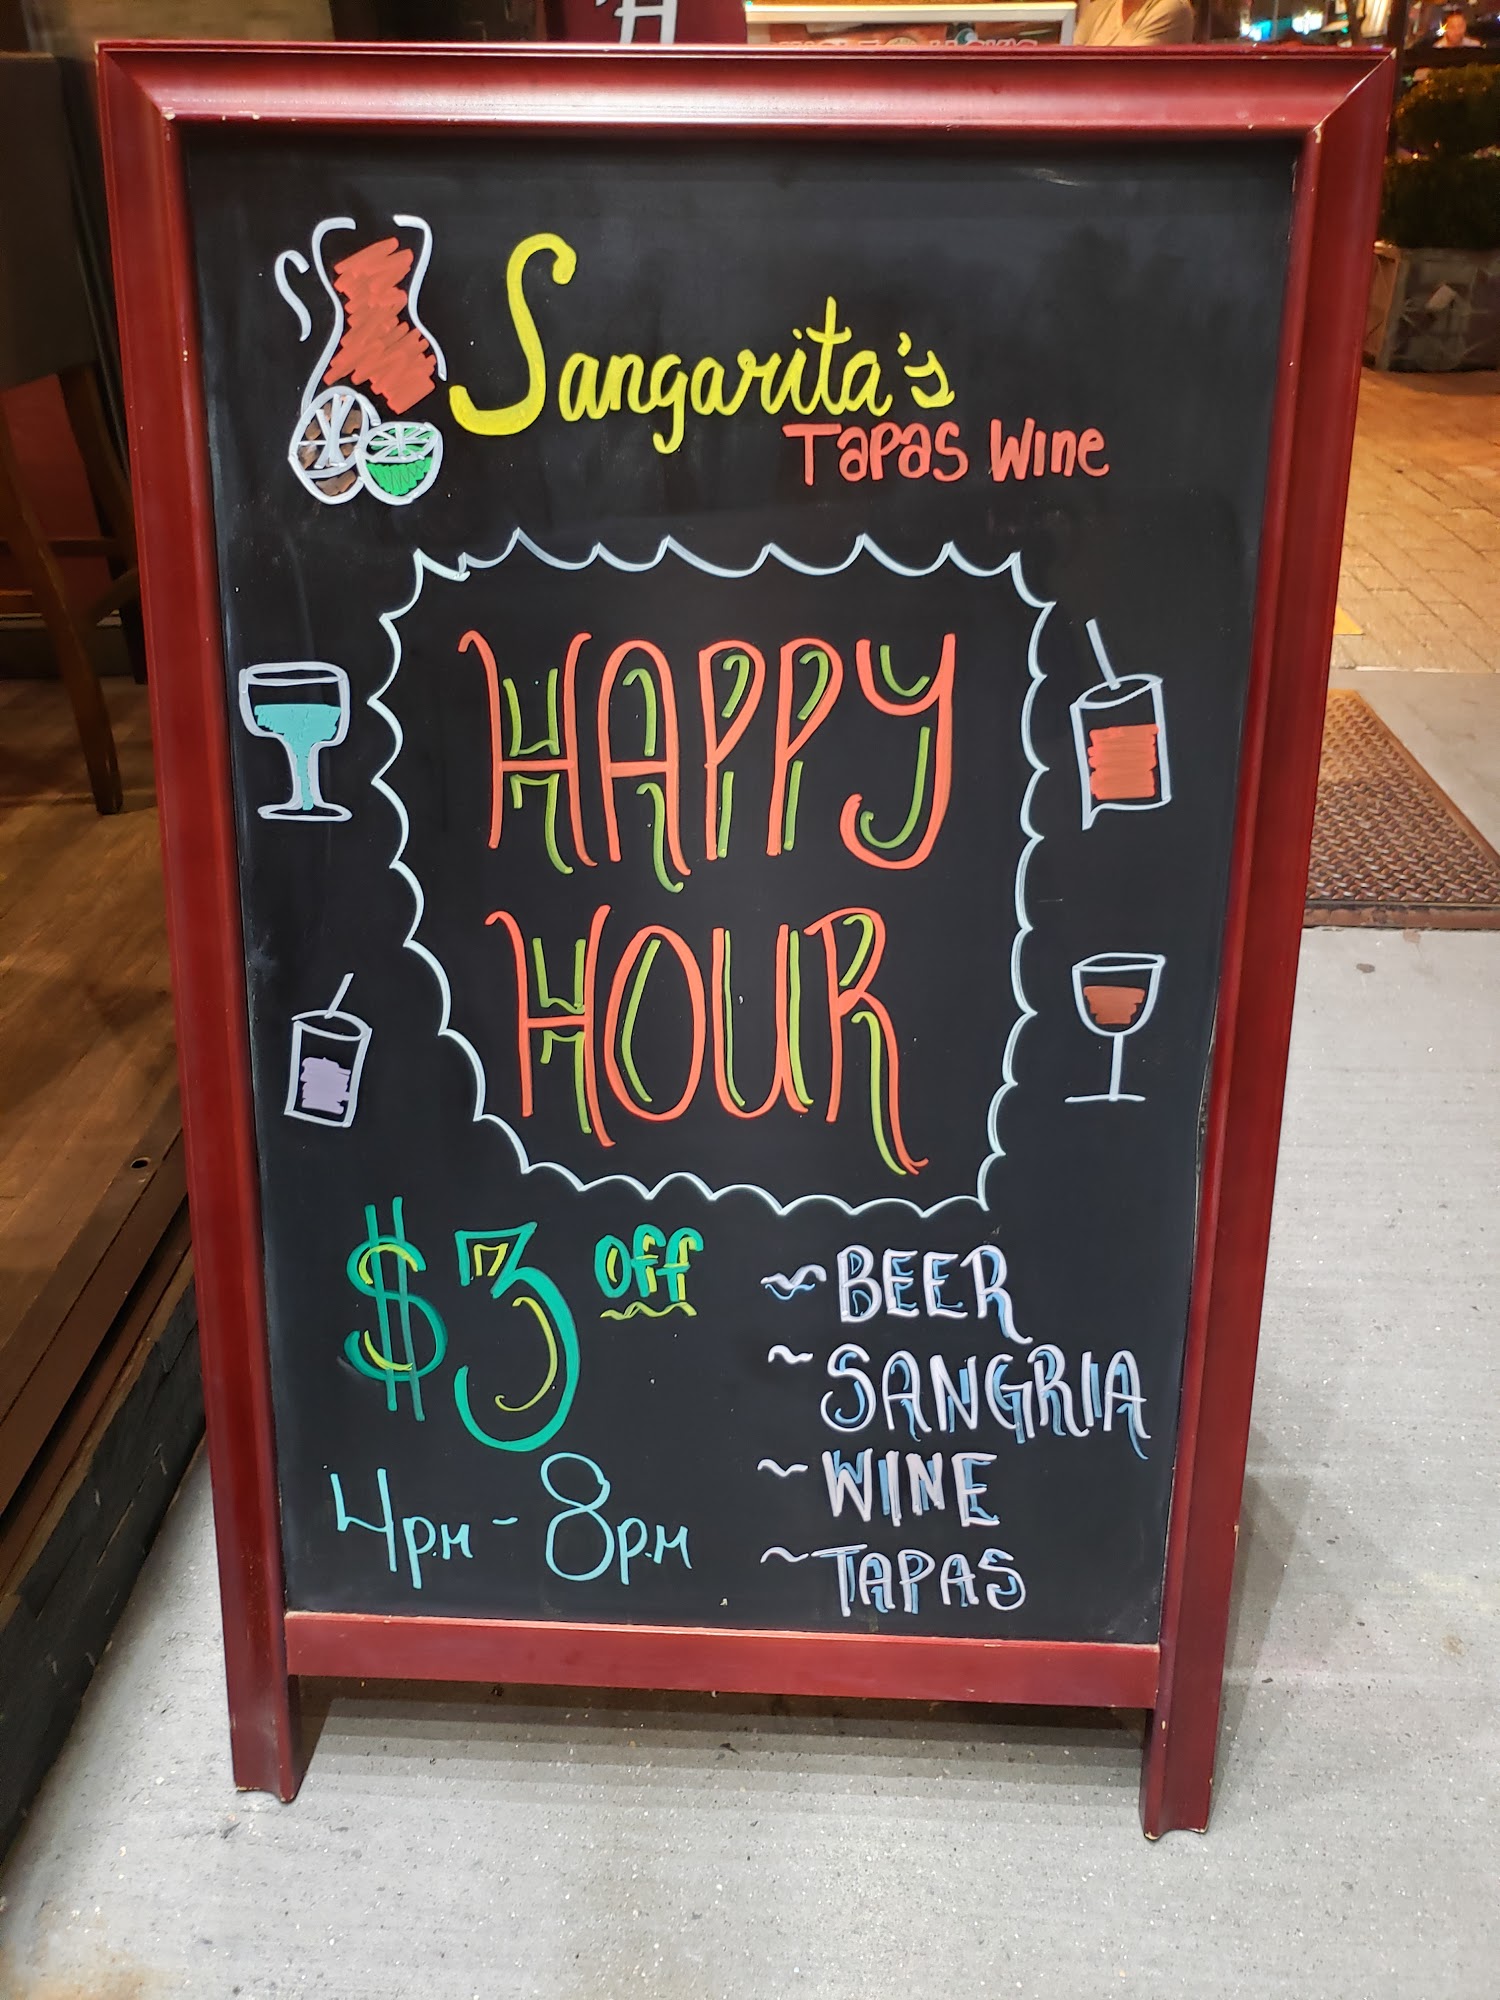 Sangarita's
Tapas Wine
HAPPY
HOUR
$3 off
4P.M - 8P.M
~BEER
~SANGRIA
~WINE
~TAPAS